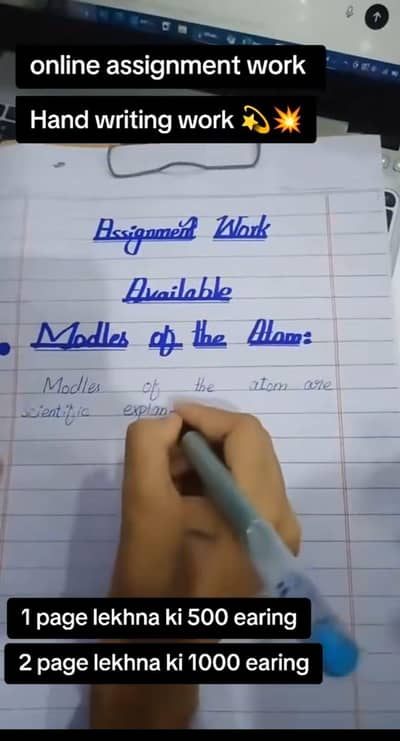 online assignment work
Hand writing work 💫💥
Assignment Work
Available
Modles of the Atom:
Modles of the atom are
scientific explan
1 page lekhna ki 500 earing
2 page lekhna ki 1000 earing